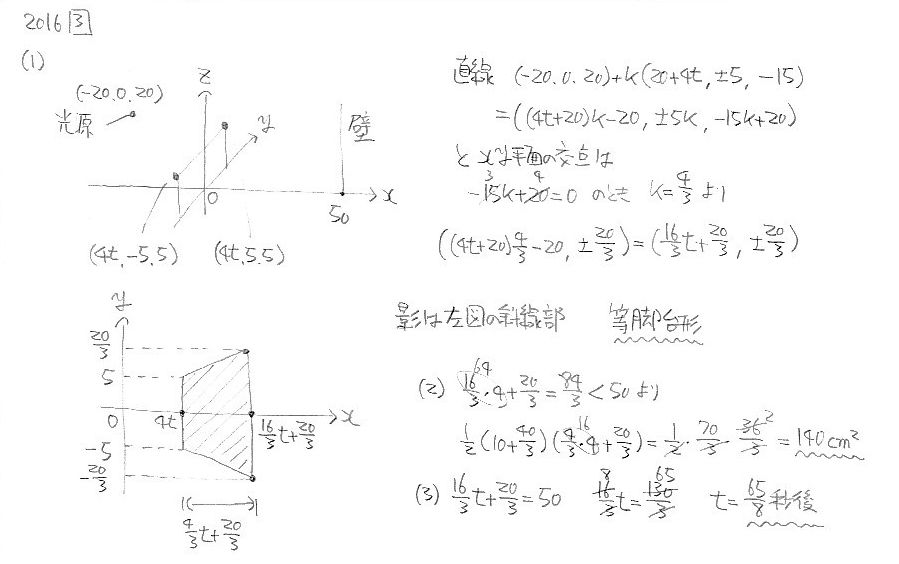 2016 3
(1)
(-20,0,20)
光原
z
y
壁
x
0
50
(4t,-5,5) (4t,5,5)
直線 (-20,0,20)+k(20+4t, ±5, -15)
=((4t+20)k-20, ±5k, -15k+20)
とxy平面の交点は
-15k+20=0 のとき k=4/3 より
3 4
((4t+20)4/3-20, ±20/3)=(16/3t+20/3, ±20/3)
y
20/3
5
0
4t
16/3t+20/3
x
-5
-20/3
4/3t+20/3
影は左図の斜線部 等脚台形
(2) 16/3・4+20/3=84/3<50 より
64
1/2(10+40/3)(4/3・4+20/3)=1/2・70/3・36/3=140cm²
16 2
(3) 16/3t+20/3=50 16/3t=130/3 t=65/8秒後
8 65